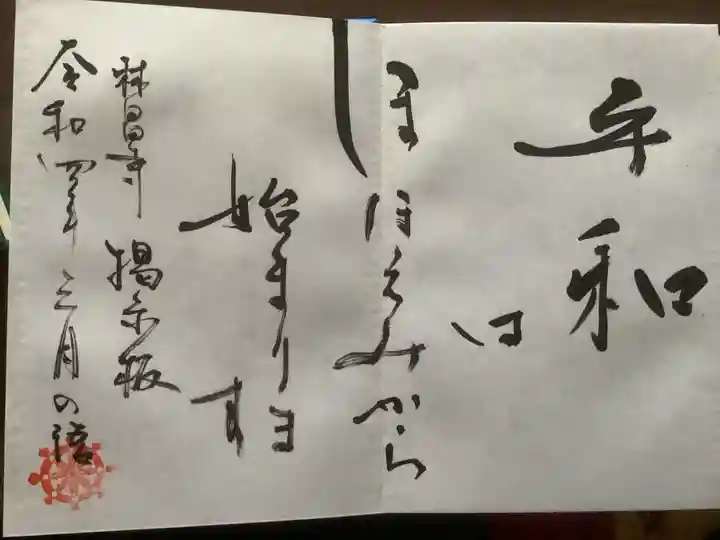 平和
は
ほほえみから
始まりま
す
林昌寺 掲示板
令和四年 三月の